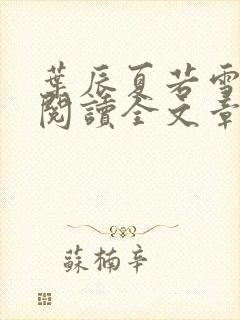 葉辰夏若雪
閱讀全文章
蘇楠辛